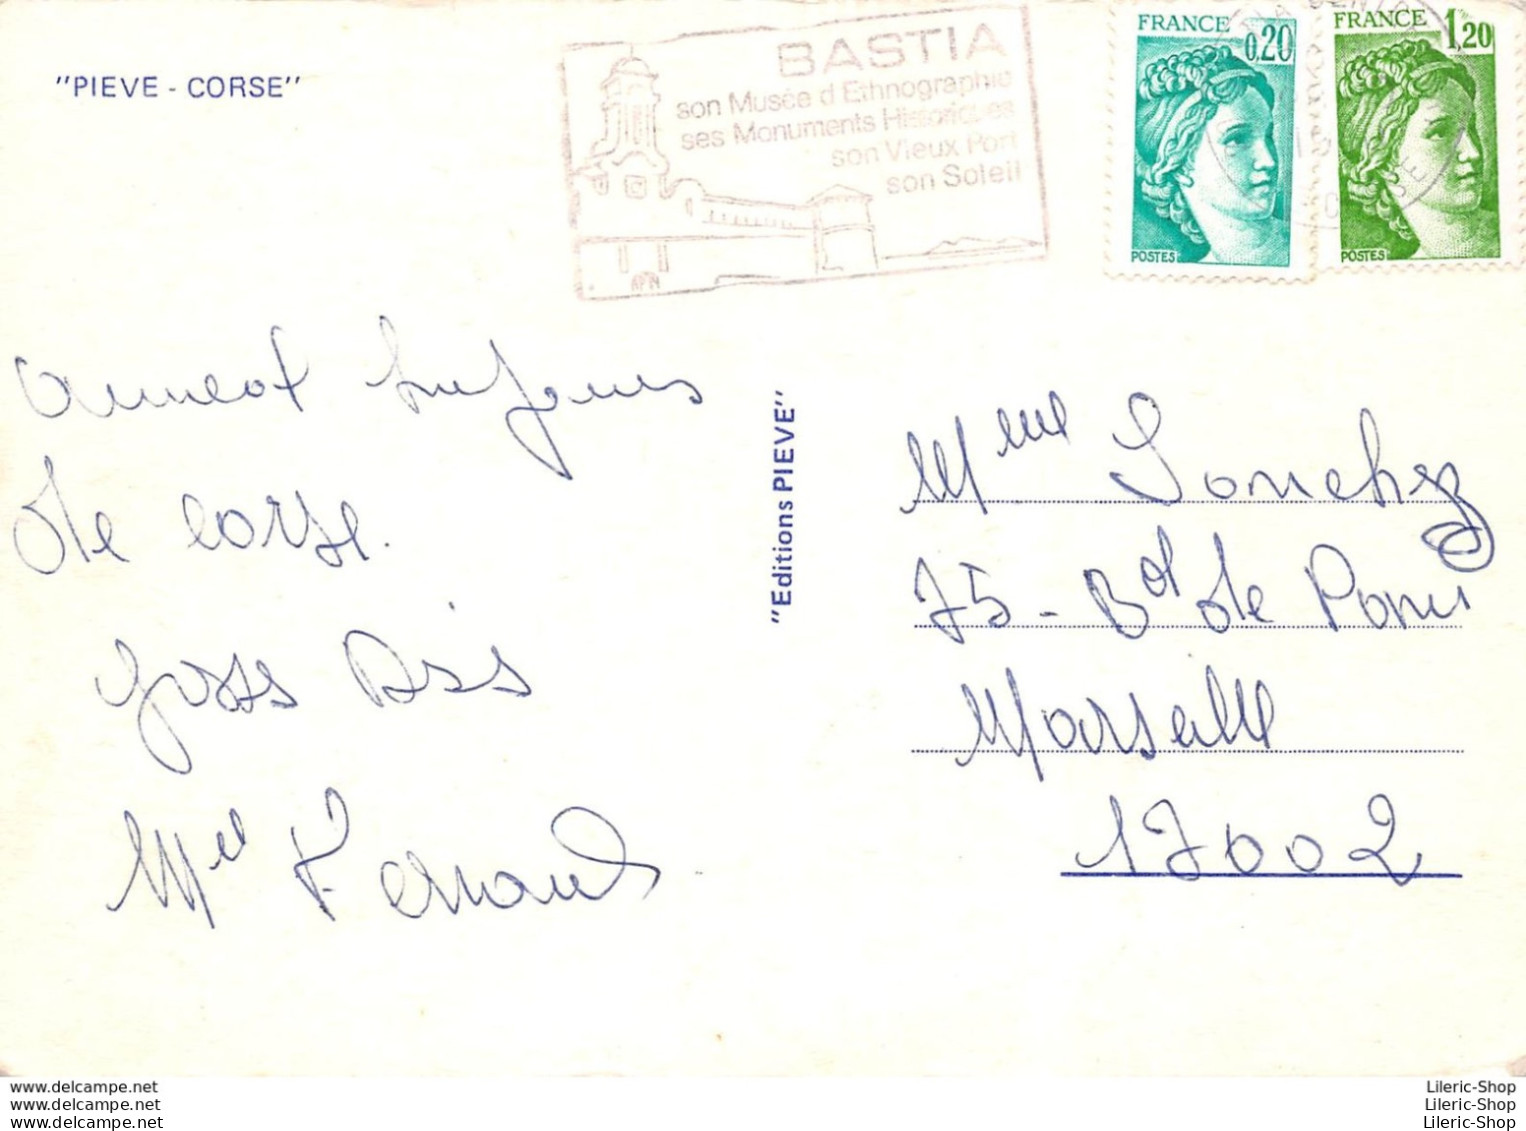 "PIEVE - CORSE"
BASTIA
son Musée d'Ethnographie
ses Monuments Historiques
son Vieux Port
son Soleil
APN
FRANCE 0,20
POSTES
FRANCE 1,20
POSTES
de corse.
gross Biss
Mel Fernand
"Editions PIEVE"
Mme Sonchez
75 - Bd de Paris
Marseille
13002
www.delcampe.net
www.delcampe.net
www.delcampe.net
Lileric-Shop
Lileric-Shop
Lileric-Shop